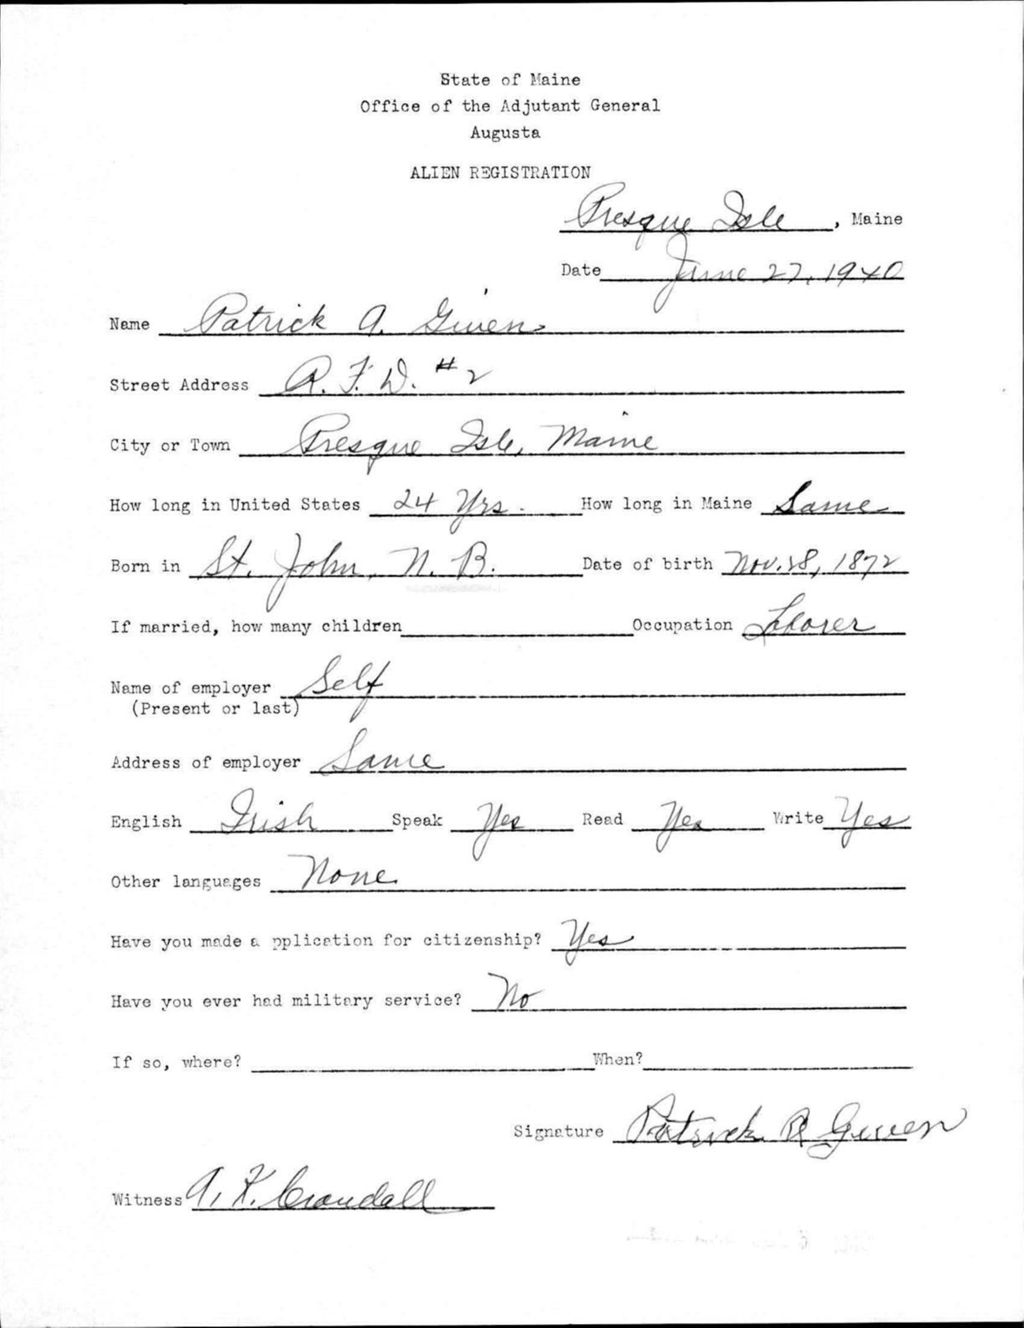 State of Maine
Office of the Adjutant General
Augusta
ALIEN REGISTRATION
Presque Isle, Maine
Date June 27, 1940
Name Patrick A. Given
Street Address R. F. D. #2
City or Town Presque Isle, Maine
How long in United States 24 Yrs. How long in Maine Same
Born in St. John, N. B. Date of birth Nov. 28, 1872
If married, how many children Occupation Laborer
Name of employer Self
(Present or last)
Address of employer Same
English Irish Speak Yes Read Yes Write Yes
Other languages None
Have you made a pplication for citizenship? Yes
Have you ever had military service? No
If so, where? When?
Signature Patrick A Given
Witness A. K. Crandall